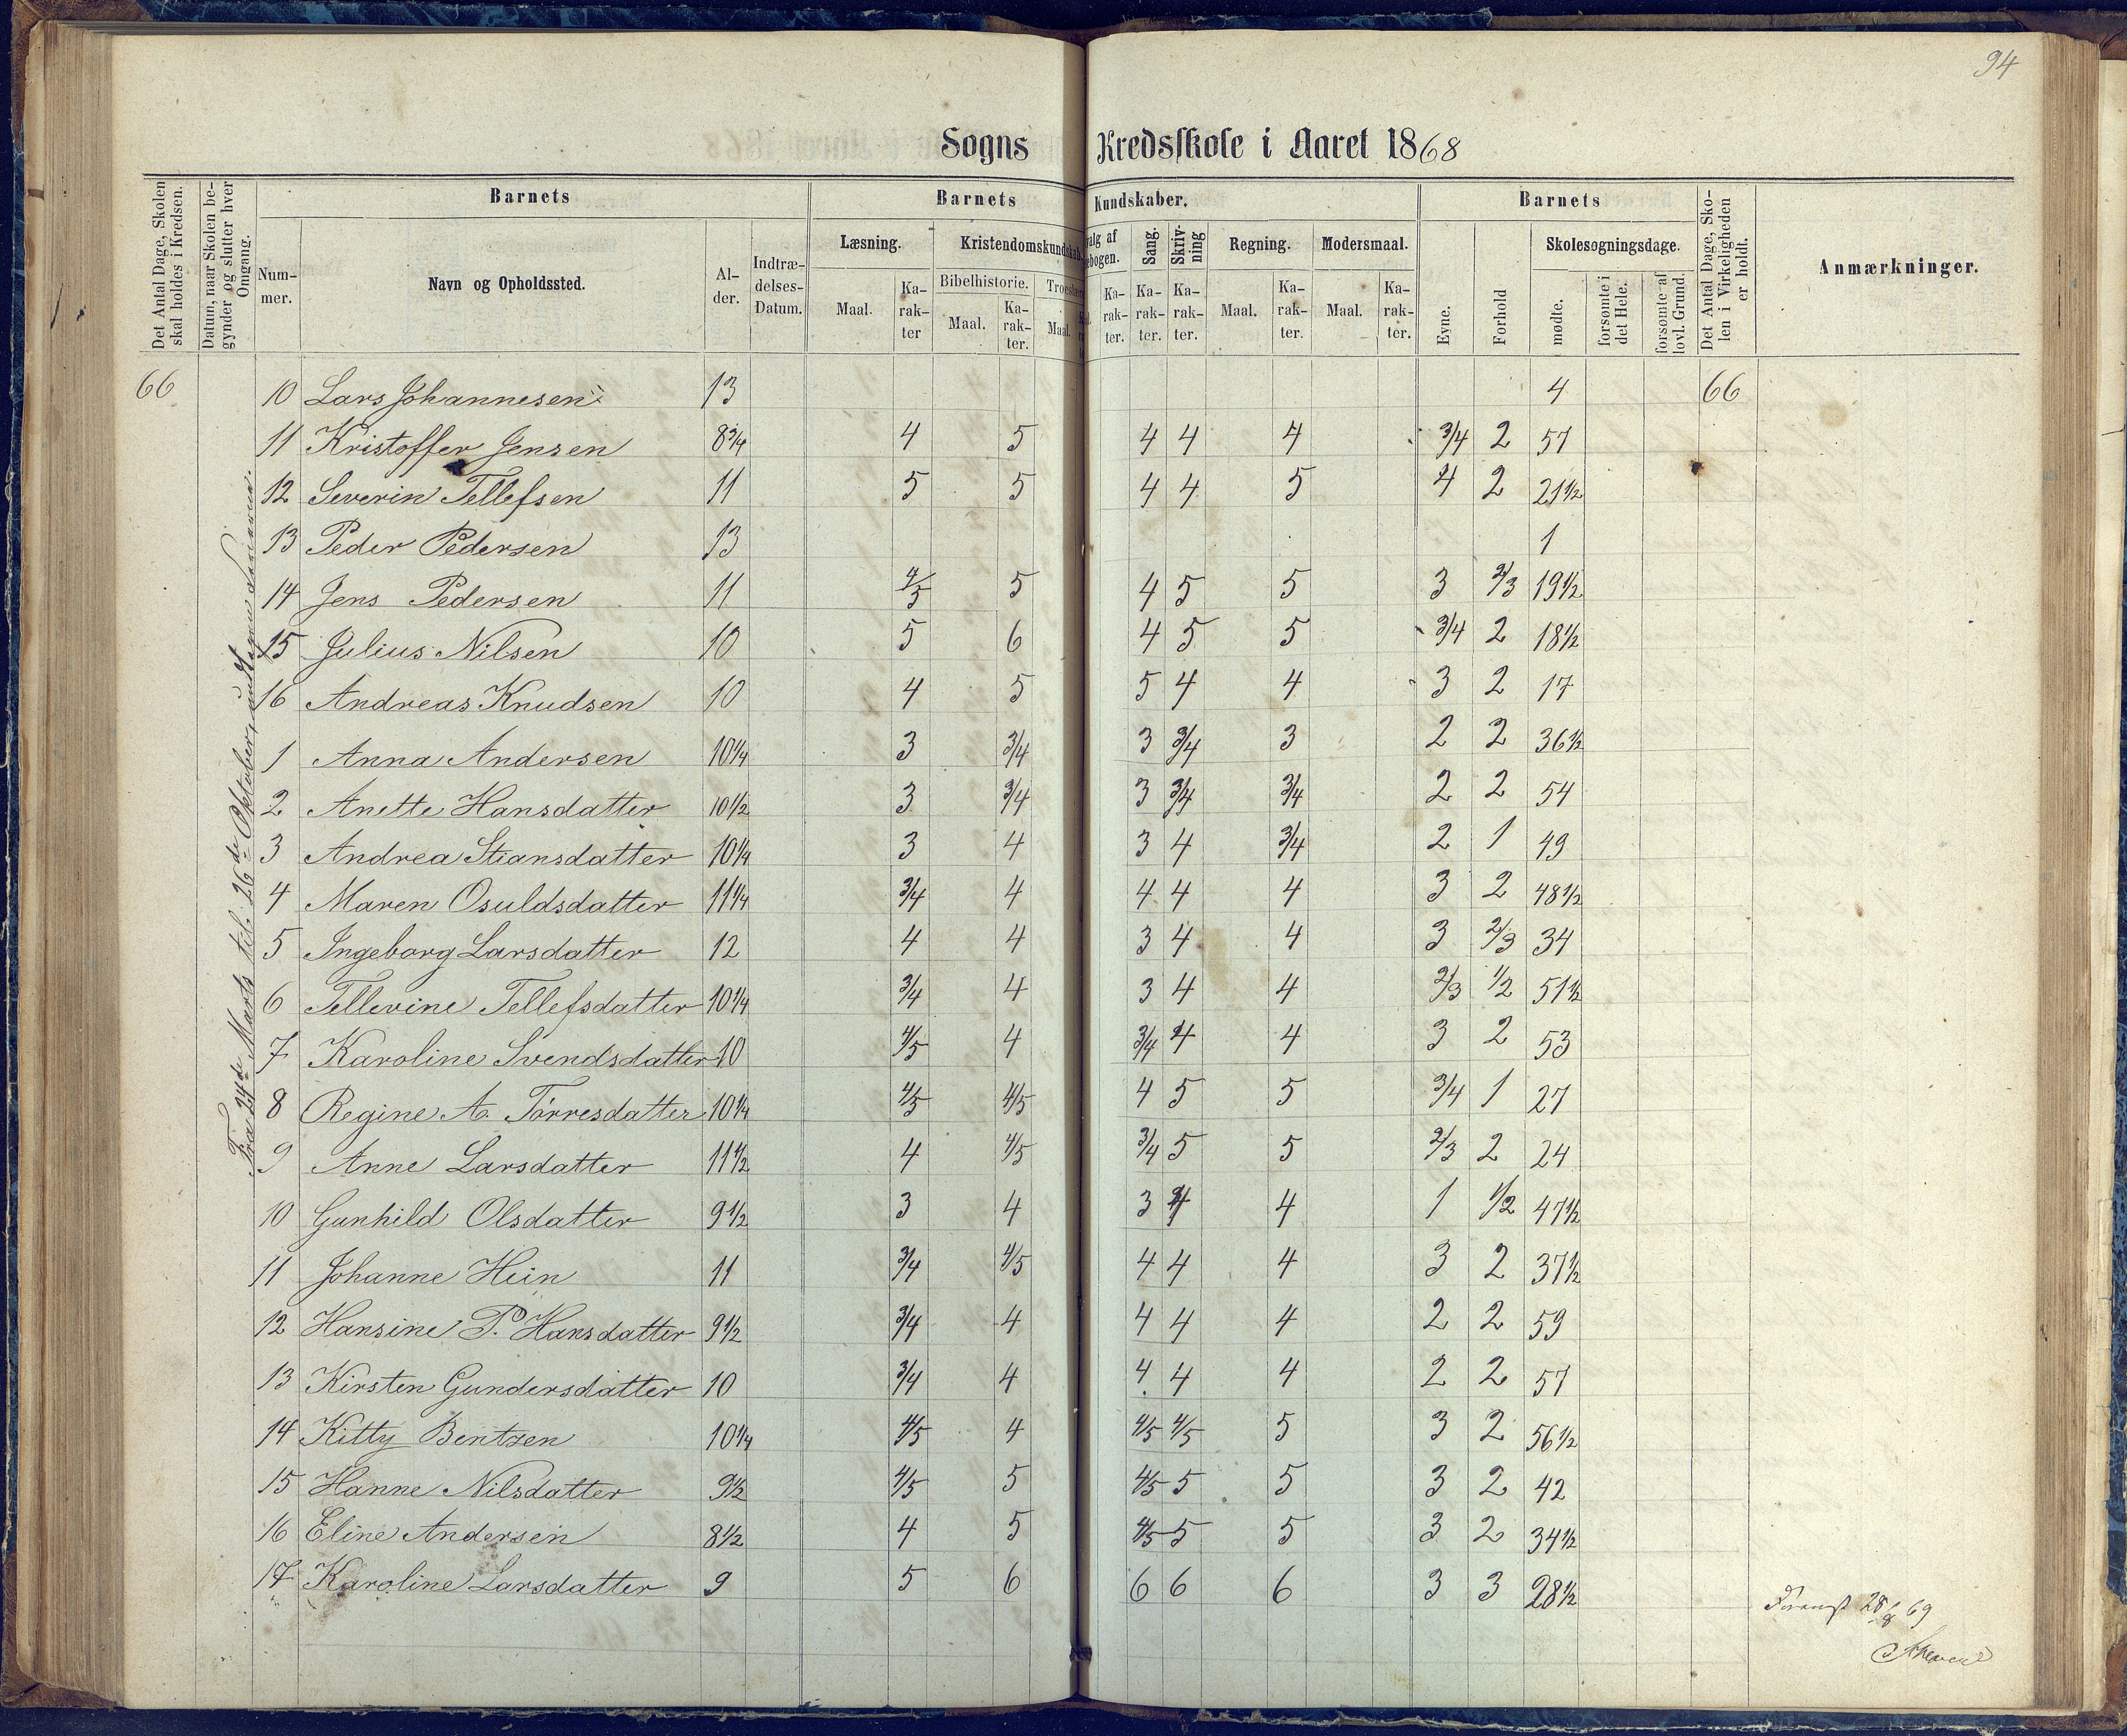 94
Sogns Kredsskole i Aaret 1868
Det Antal Dage, Skolen skal holdes i Kredsen.
Datum, naar Skolen begynder og slutter hver Omgang.
Barnets
Nummer.
Navn og Opholdssted.
Alder.
Indtrædelses-Datum.
Barnets Kundskaber.
Læsning.
Maal.
Karakter
Kristendomskundskab.
Bibelhistorie.
Maal.
Karakter.
Maal.
Karakter.
Sang.
Karakter.
Skrivning
Karakter.
Regning.
Maal.
Karakter.
Modersmaal.
Maal.
Karakter.
Barnets
Evne.
Forhold
Skolesøgningsdage.
mødte.
forsømte i det Hele.
forsømte af lovl. Grund.
Det Antal Dage, Skolen i Virkeligheden er holdt.
Anmærkninger.
66 10 Lars Johannesen 13 4 66
11 Kristoffer Jensen 8¾ 4 5 4 4 4 3/4 2 57
12 Severin Tellefsen 11 5 5 4 4 5 4 2 21½
13 Peder Pedersen 13 1
14 Jens Pedersen 11 4/5 5 4 5 5 3 2/3 19½
15 Julius Nilsen 10 5 6 4 5 5 3/4 2 18½
16 Andreas Knudsen 10 4 5 5 4 4 3 2 17
1 Anna Andersen 10¼ 3 3/4 3 3/4 3 2 2 36½
2 Anette Hansdatter 10½ 3 3/4 3 3/4 3/4 2 2 54
3 Andrea Stiansdatter 10¼ 3 4 3 4 3/4 2 1 49
4 Maren Osuldsdatter 11¼ 3/4 4 4 4 4 3 2 48½
5 Ingeborg Larsdatter 12 4 4 3 4 4 3 2/3 34
6 Tellevine Tellefsdatter 10¼ 3/4 4 3 4 4 2/3 1/2 51½
7 Karoline Svendsdatter 10 4/5 4 3/4 4 4 3 2 53
8 Regine A. Tørresdatter 10¼ 4/5 4/5 4 5 5 3/4 1 27
9 Anne Larsdatter 11½ 4 4/5 3/4 5 5 2/3 2 24
10 Gunhild Olsdatter 9½ 3 4 3 4 4 1 1/2 47½
11 Johanne Hein 11 3/4 4/5 4 4 4 3 2 37½
12 Hansine P. Hansdatter 9½ 3/4 4 4 4 4 2 2 59
13 Kirsten Gundersdatter 10 3/4 4 4 4 4 2 2 57
14 Kitty Bentzen 10¼ 4/5 4 4/5 4/5 5 3 2 56½
15 Hanne Nilsdatter 9½ 4/5 5 4/5 5 5 3 2 42
16 Eline Andersen 8½ 4 5 4/5 5 5 3 2 34½
17 Karoline Larsdatter 9 5 6 6 6 6 3 3 28½
Fra 24de Marts til 26de Oktober,
28/8 69